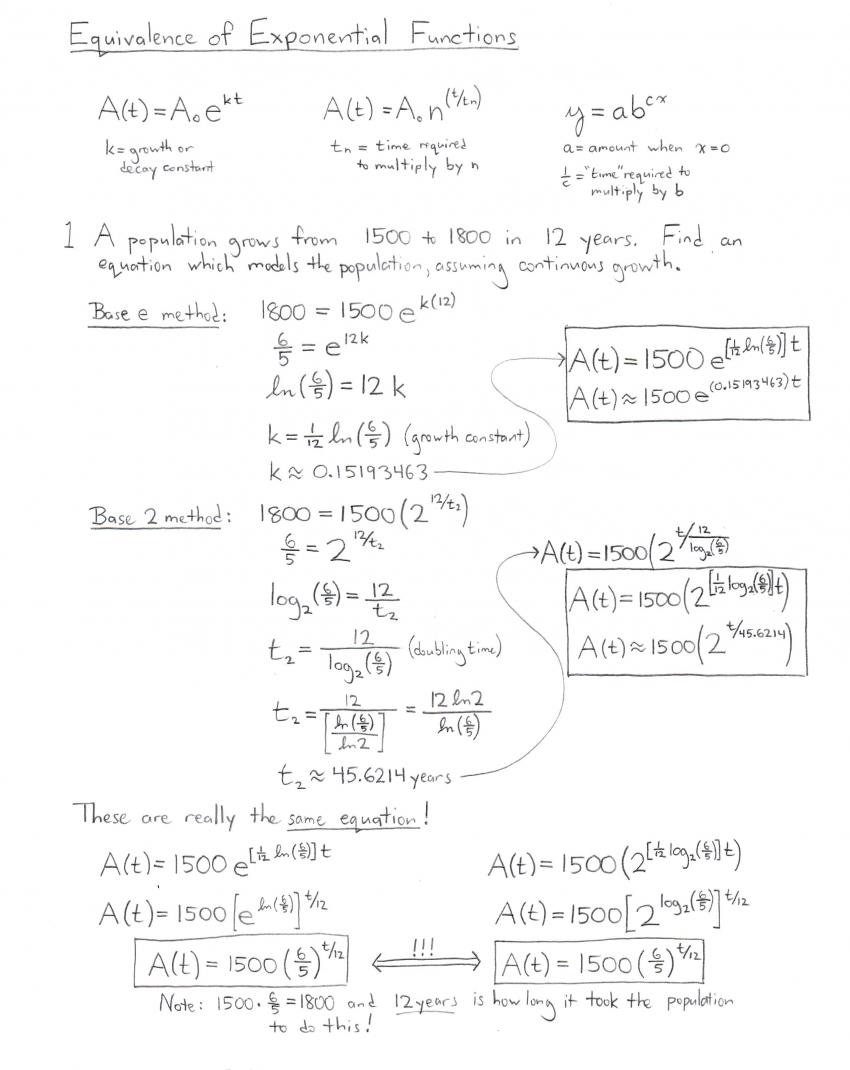 Equivalence of Exponential Functions
A(t) = A₀e^(kt)
k = growth or
decay constant
A(t) = A₀n^(t/tₙ)
tₙ = time required
to multiply by n
y = ab^(cx)
a = amount when x = 0
1/c = "time" required to
multiply by b
1 A population grows from 1500 to 1800 in 12 years. Find an
equation which models the population, assuming continuous growth.
Base e method:
1800 = 1500e^(k(12))
6/5 = e^(12k)
ln(6/5) = 12k
k = 1/12 ln(6/5) (growth constant)
k ≈ 0.15193463
A(t) = 1500e^([1/12 ln(6/5)]t)
A(t) ≈ 1500e^((0.15193463)t)
Base 2 method:
1800 = 1500(2^(12/t₂))
6/5 = 2^(12/t₂)
log₂(6/5) = 12/t₂
t₂ = 12/log₂(6/5) (doubling time)
t₂ = 12/[ln(6/5)/ln2] = 12 ln2/ln(6/5)
t₂ ≈ 45.6214 years
A(t) = 1500(2^(t/(12/log₂(6/5)))
A(t) = 1500(2^([1/12 log₂(6/5)]t))
A(t) ≈ 1500(2^(t/45.6214))
These are really the same equation!
A(t) = 1500e^([1/12 ln(6/5)]t)
A(t) = 1500[e^(ln(6/5))]^(t/12)
A(t) = 1500(6/5)^(t/12)
!!!
A(t) = 1500(2^([1/12 log₂(6/5)]t))
A(t) = 1500[2^(log₂(6/5))]^(t/12)
A(t) = 1500(6/5)^(t/12)
Note: 1500 · 6/5 = 1800 and 12 years is how long it took the population
to do this!